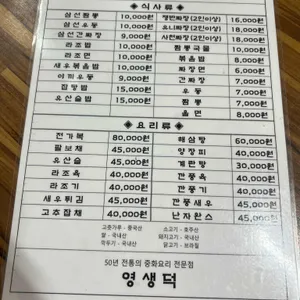 ◈ 식사류 ◈
삼선짬뽕 10,000원 쟁반짜장(2인이상) 16,000원
삼선우동 10,000원 유니짜장(2인이상) 18,000원
삼선간짜장 9,000원 사천짜장(2인이상) 18,000원
라조밥 10,000원 짬뽕국물 10,000원
라조면 10,000원 볶음밥 8,000원
새우볶음밥 10,000원 짜장면 6,000원
9,000원 간짜장 7,000원
잡탕밥 15,000원 우동 7,000원
유산슬밥 15,000원 짬뽕 7,000원
울면 8,000원
◈ 요리류 ◈
전가복 80,000원 해삼탕 60,000원
팔보채 45,000원 양장피 40,000원
유산슬 45,000원 계란탕 30,000원
라조육 40,000원 깐풍육 40,000원
라조기 40,000원 깐풍기 40,000원
새우튀김 45,000원 깐풍새우 45,000원
고추잡채 40,000원 난자완스 45,000원
고춧가루 - 중국산 소고기 - 호주산
쌀 - 국내산 돼지고기 - 국내산
깍두기 - 국내산 닭고기 - 브라질
50년 전통의 중화요리 전문점
영생덕